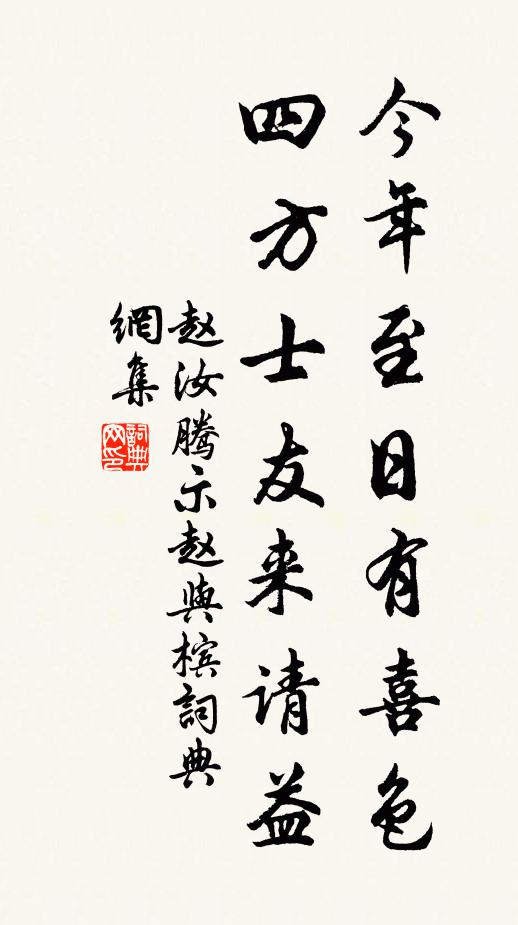 今年至日有喜色
四方士友来请益
赵汝腾示赵與槟詞典
網集
詞典
网印